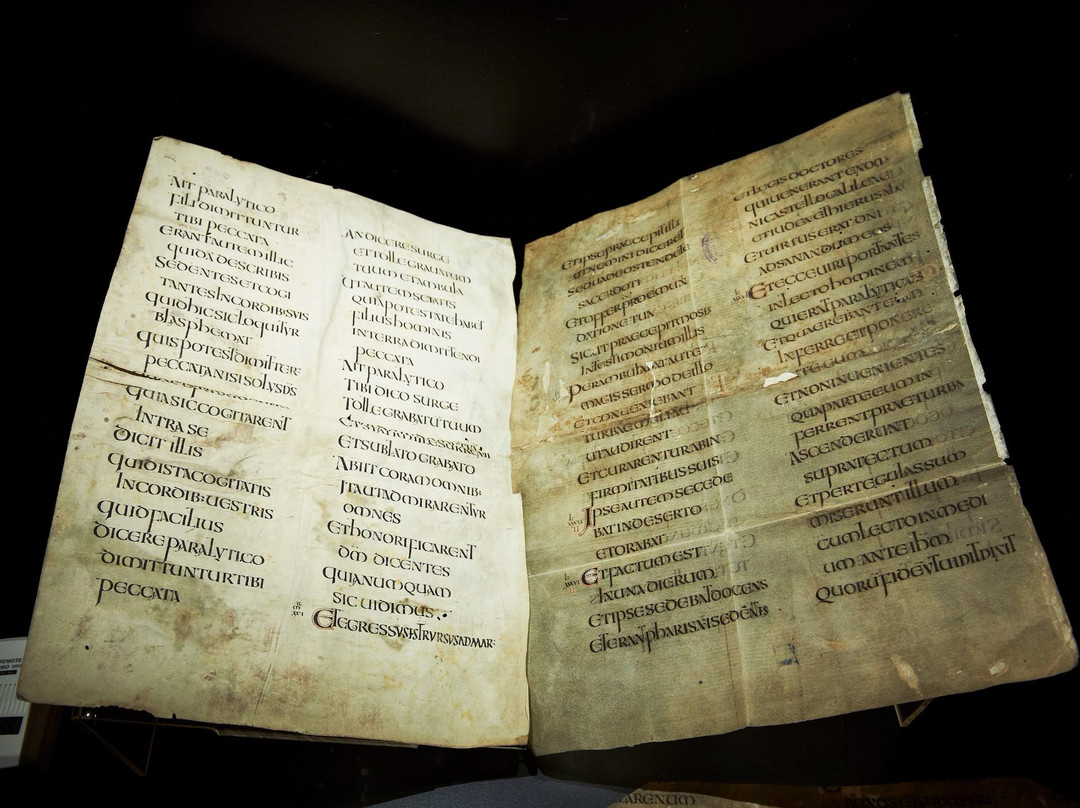 AIT PARALYTICO
FILI DIMITTUNTUR
TIBI PECCATA
ERANT AUTEM ILLIC
QUIDA DESCRIBIS
SEDENTES ET COGI
TANTES IN CORDIB:SUIS
QUID HIC SIC LOQUITUR
BLASPHEMAT
QUIS POTEST DIMITTER:
PECCATA NISI SOLUS DS
QUIA SIC COGITARENT
INTRA SE
DICIT ILLIS
QUID ISTA COGITATIS
IN CORDIB:UESTRIS
QUID FACILIUS
DICERE PARALYTICO
DIMITTUNTUR TIBI
PECCATA
AN DICERE SURGE
ET TOLLE GRAUATUM
TUUM ET AMBULA
UT AUTEM SCIATIS
QUIA POTESTATE HABET
FILIUS HOMINIS
IN TERRA DIMITTENDI
PECCATA
AIT PARALYTICO
TIBI DICO SURGE
TOLLE GRABATU TUUM
ET SUBLATO GRABATO
ABIIT CORAM OMNIB:
ITA UT ADMIRARENTUR
OMNES
ET HONORIFICARENT
DM DICENTES
QUIA NUMQUAM
SIC UIDIMUS
ET EGRESSUS IS RURSUS AD MAR:
ET IPSE PRAECEPIT ILLI
UT NEMINI DICERET
SED UADE OSTENDE TE
SACERDOTI
ET OFFER PRO EMUN
DATIONE TUA
SICUT PRAECEPIT MOSES
IN TESTIMONIUM ILLIS
PERAMBULABAT AUTE
MAGIS SERMO DE ILLO
ET CONUENIEBANT
TURBAE MULTAE
UT AUDIRENT
ET CURARENTUR AB IN
FIRMITATIBUS SUIS
IPSE AUTEM SECEDE
BAT IN DESERTO
ET ORABAT
ET FACTUM EST
IN UNA DIERUM
ET IPSE SEDEBAT DOCENS
ET ERANT PHARISAEI SEDENTES
ET LEGIS DOCTORES
QUI UENERANT EX OM
NI CASTELLO GALILEAE
ET IUDEAE ET HIERUSALE
ET UIRTUS ERAT DNI
AD SANANDUM EOS
ET ECCE UIRI PORTANTES
IN LECTO HOMINEM
QUI ERAT PARALYTICUS
ET QUAEREBANT EUM
INFERRE ET PONERE
ANTE EUM
ET NON INUENIENTES
QUA PARTE EUM IN
FERRENT PRAE TURBA
ASCENDERUNT
SUPRA TECTUM
ET PER TEGULAS SUM
MISERUNT ILLUM
CUM LECTO IN MEDI
UM ANTE IHM
QUORU FIDE UT UIDIT DIXIT